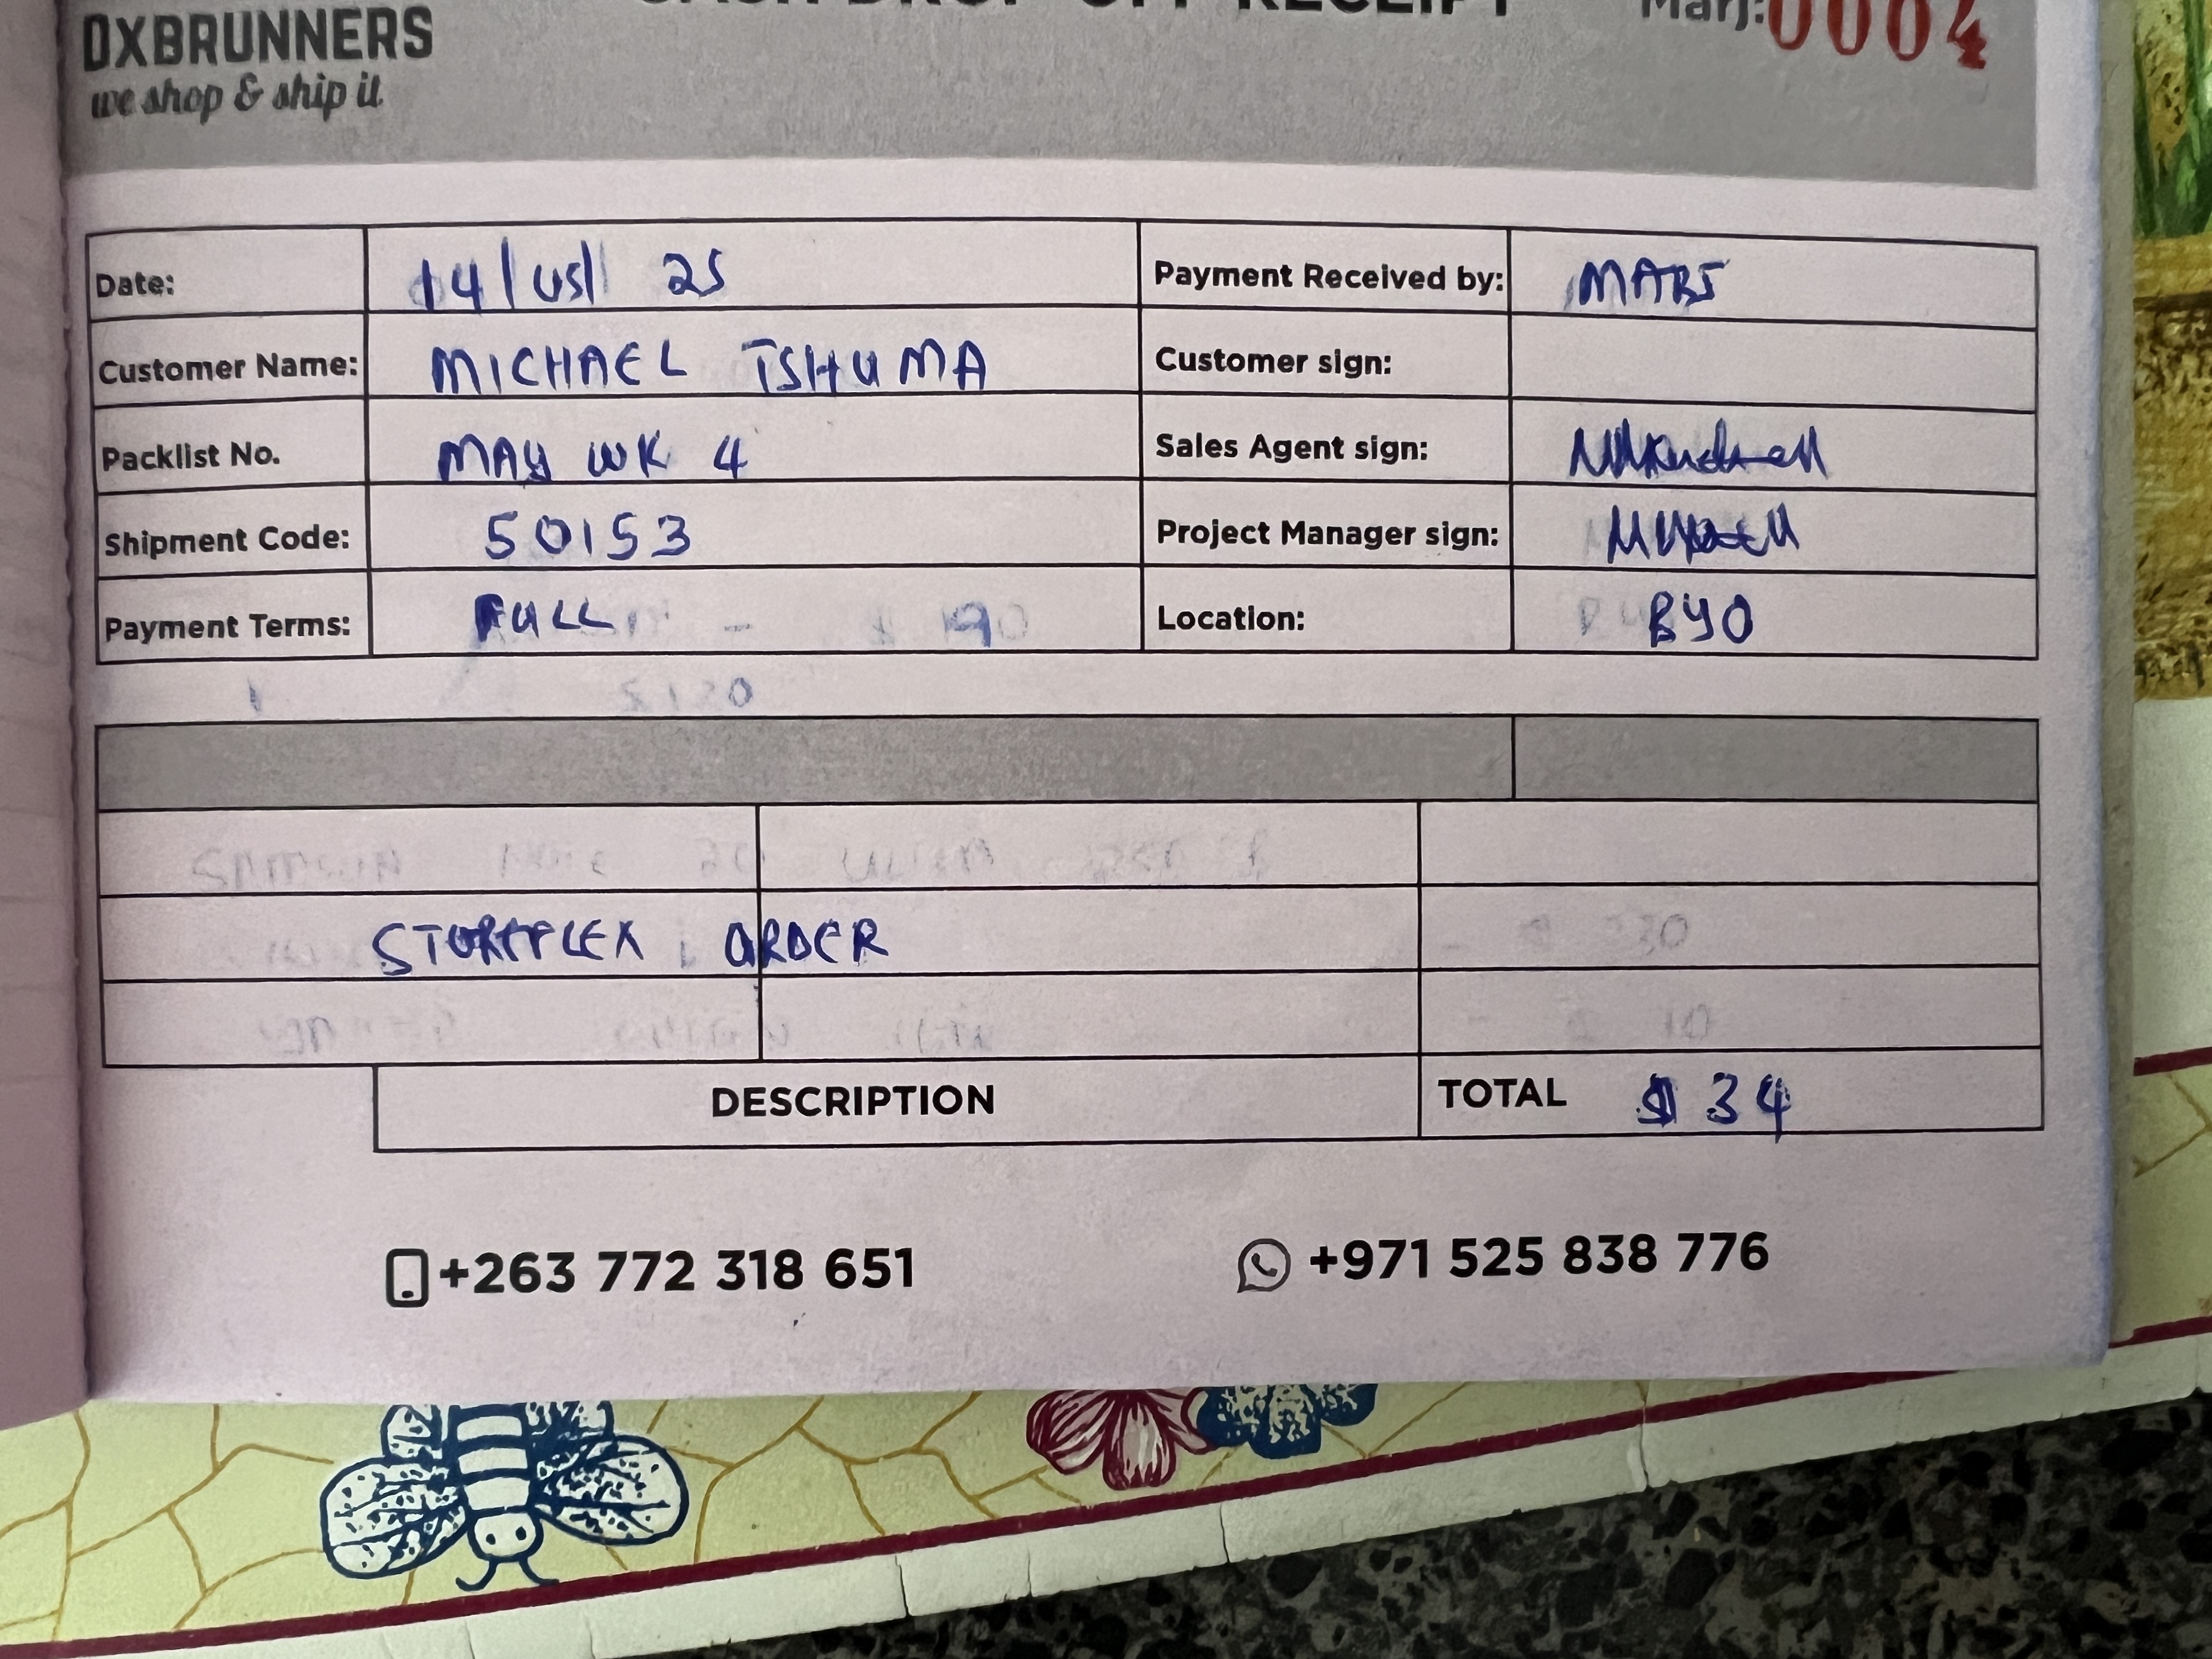 OXBRUNNERS
we shop & ship it
CASH DROP-OFF RECEIPT
Marj: 0004
Date: 14/05/ 25
Payment Received by: MARJ
Customer Name: MICHAEL TSHUMA
Customer sign:
Packlist No. MAY WK 4
Sales Agent sign:
Shipment Code: 50153
Project Manager sign:
Payment Terms: FULL
Location: BYO
ORDER
DESCRIPTION
TOTAL $ 34
+263 772 318 651
+971 525 838 776